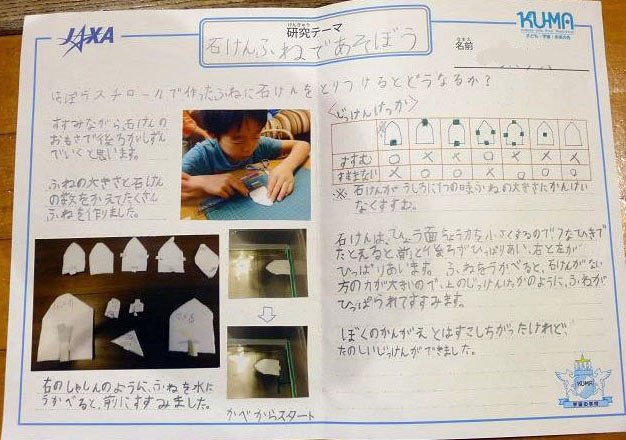 JAXA
けんきゅう
研究テーマ
石けんふねであそぼう
KU-MA
なまえ
名前
はっぽうスチロールで作ったふねに石けんをとりつけるとどうなるか？
すすみながら、石けんの
おもさで後ろがしずん
でいくと思います。
ふねの大きさと石けん
の数をかえてたくさん
ふねを作りました。
右のしゃしんのように、ふねを水に
うかべると、前にすすみました。
かべからスタート
〈じっけんけっか〉
※
すすむ ○ × × ○ × × ×
すすまない × ○ ○ × ○ ○ ○
※ 石けんがうしろに1つの時、ふねの大きさにかんけい
なくすすむ。
石けんは、ひょう面ちょう力を小さくするので
たとえると、前と後ろがひっぱりあい、右と左が
ひっぱりあいます。 ふねをうかべると、石けんがない
方の力が大きいので、上のじっけんけっかのように、ふねが
ひっぱられてすすみます。
ぼくのかんがえとはすこしちがったけれど、
たのしいじっけんができました。
KUMA
宇宙の学校